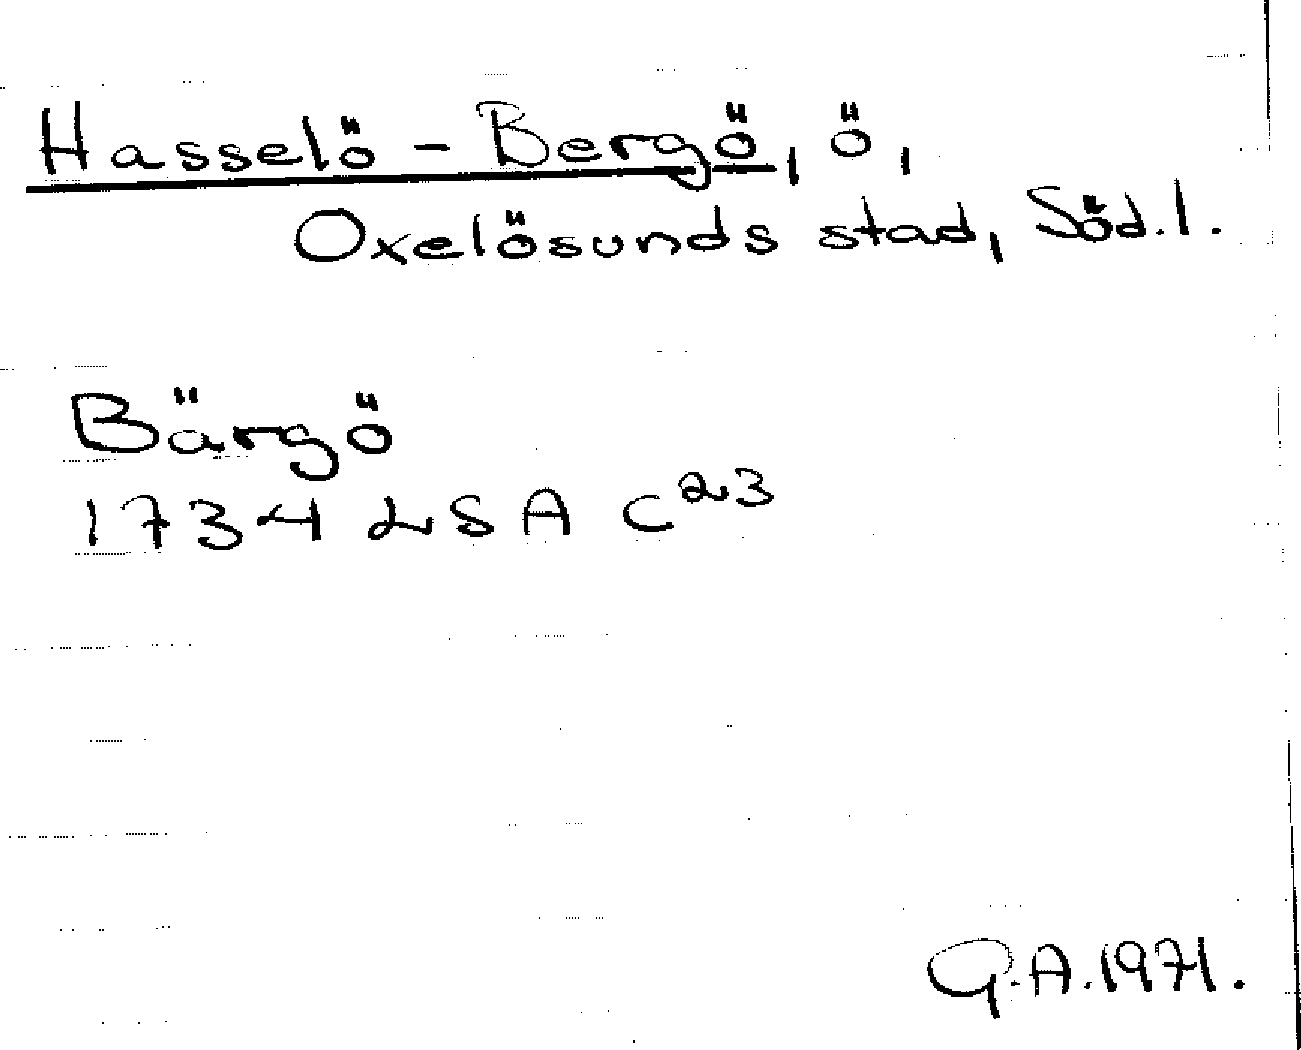 Hasselö - Bergö, ö,
Oxelösunds stad, Söd.l.
Bärgö
1734 LSA C23
G.A. 1971.